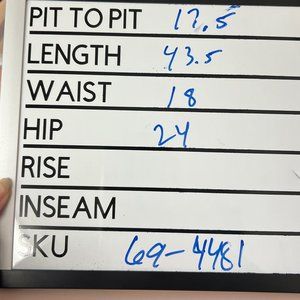 PIT TO PIT 17.5
LENGTH 43.5
WAIST 18
HIP 24
RISE
INSEAM
SKU 69-4481